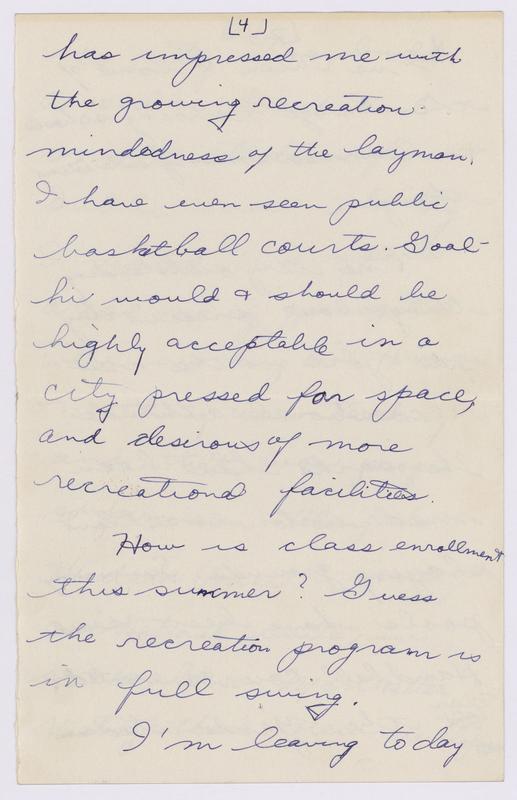 [4]
has impressed me with
the growing recreation-
mindedness of the layman.
I have even seen public
basketball courts. Goal-
hi would & should be
highly acceptable in a
city pressed for space,
and desirous of more
recreational facilities.
How is class enrollment
this summer? Guess
the recreation program is
in full swing.
I'm leaving today